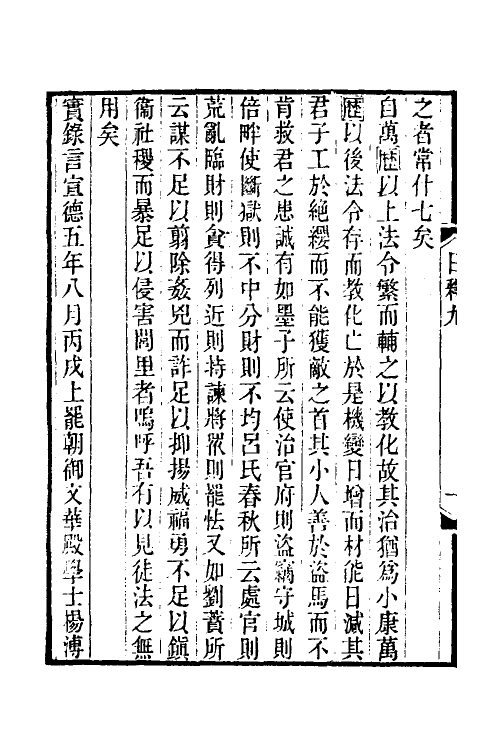 之者常什七矣
自萬歷以上法令繁而輔之以教化故其治猶為小康萬
歷以後法令存而教化亡於是機變日增而材能日減其
君子工於絶纓而不能獲敵之首其小人善於盜馬而不
肯救君之患誠有如墨子所云使治官府則盜竊守城則
倍畔使斷獄則不中分財則不均呂氏春秋所云處官則
荒亂臨財則貪得列近則持諫將衆則罷怯又如劉蕡所
云謀不足以翦除姦兇而詐足以抑揚威福勇不足以鎭
衞社稷而暴足以侵害閭里者嗚呼吾有以見徒法之無
用矣
實錄言宣德五年八月丙戌上罷朝御文華殿學士楊溥
日釋九